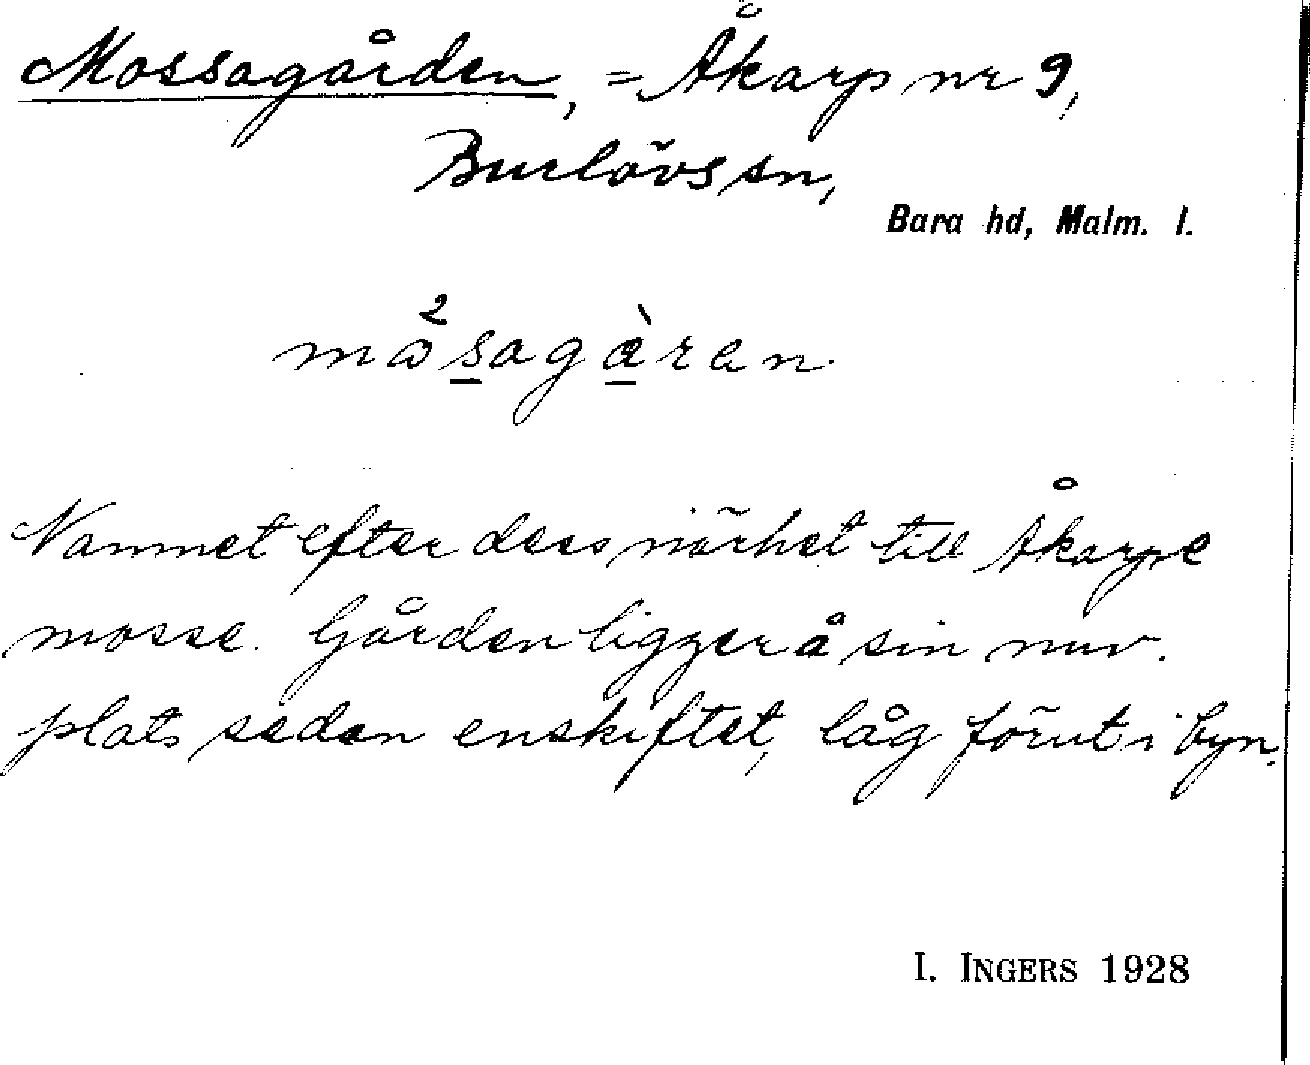 Mossagården, = Åkarp nr 9,
Burlövs sn,
Bara hd, Malm. l.
må²s̲agὰ̲ren
Namnet efter dess närhet till Åkarps
mosse. Gården ligger å sin nuv.
plats sedan enskiftet, låg förut i byn.
I. INGERS 1928